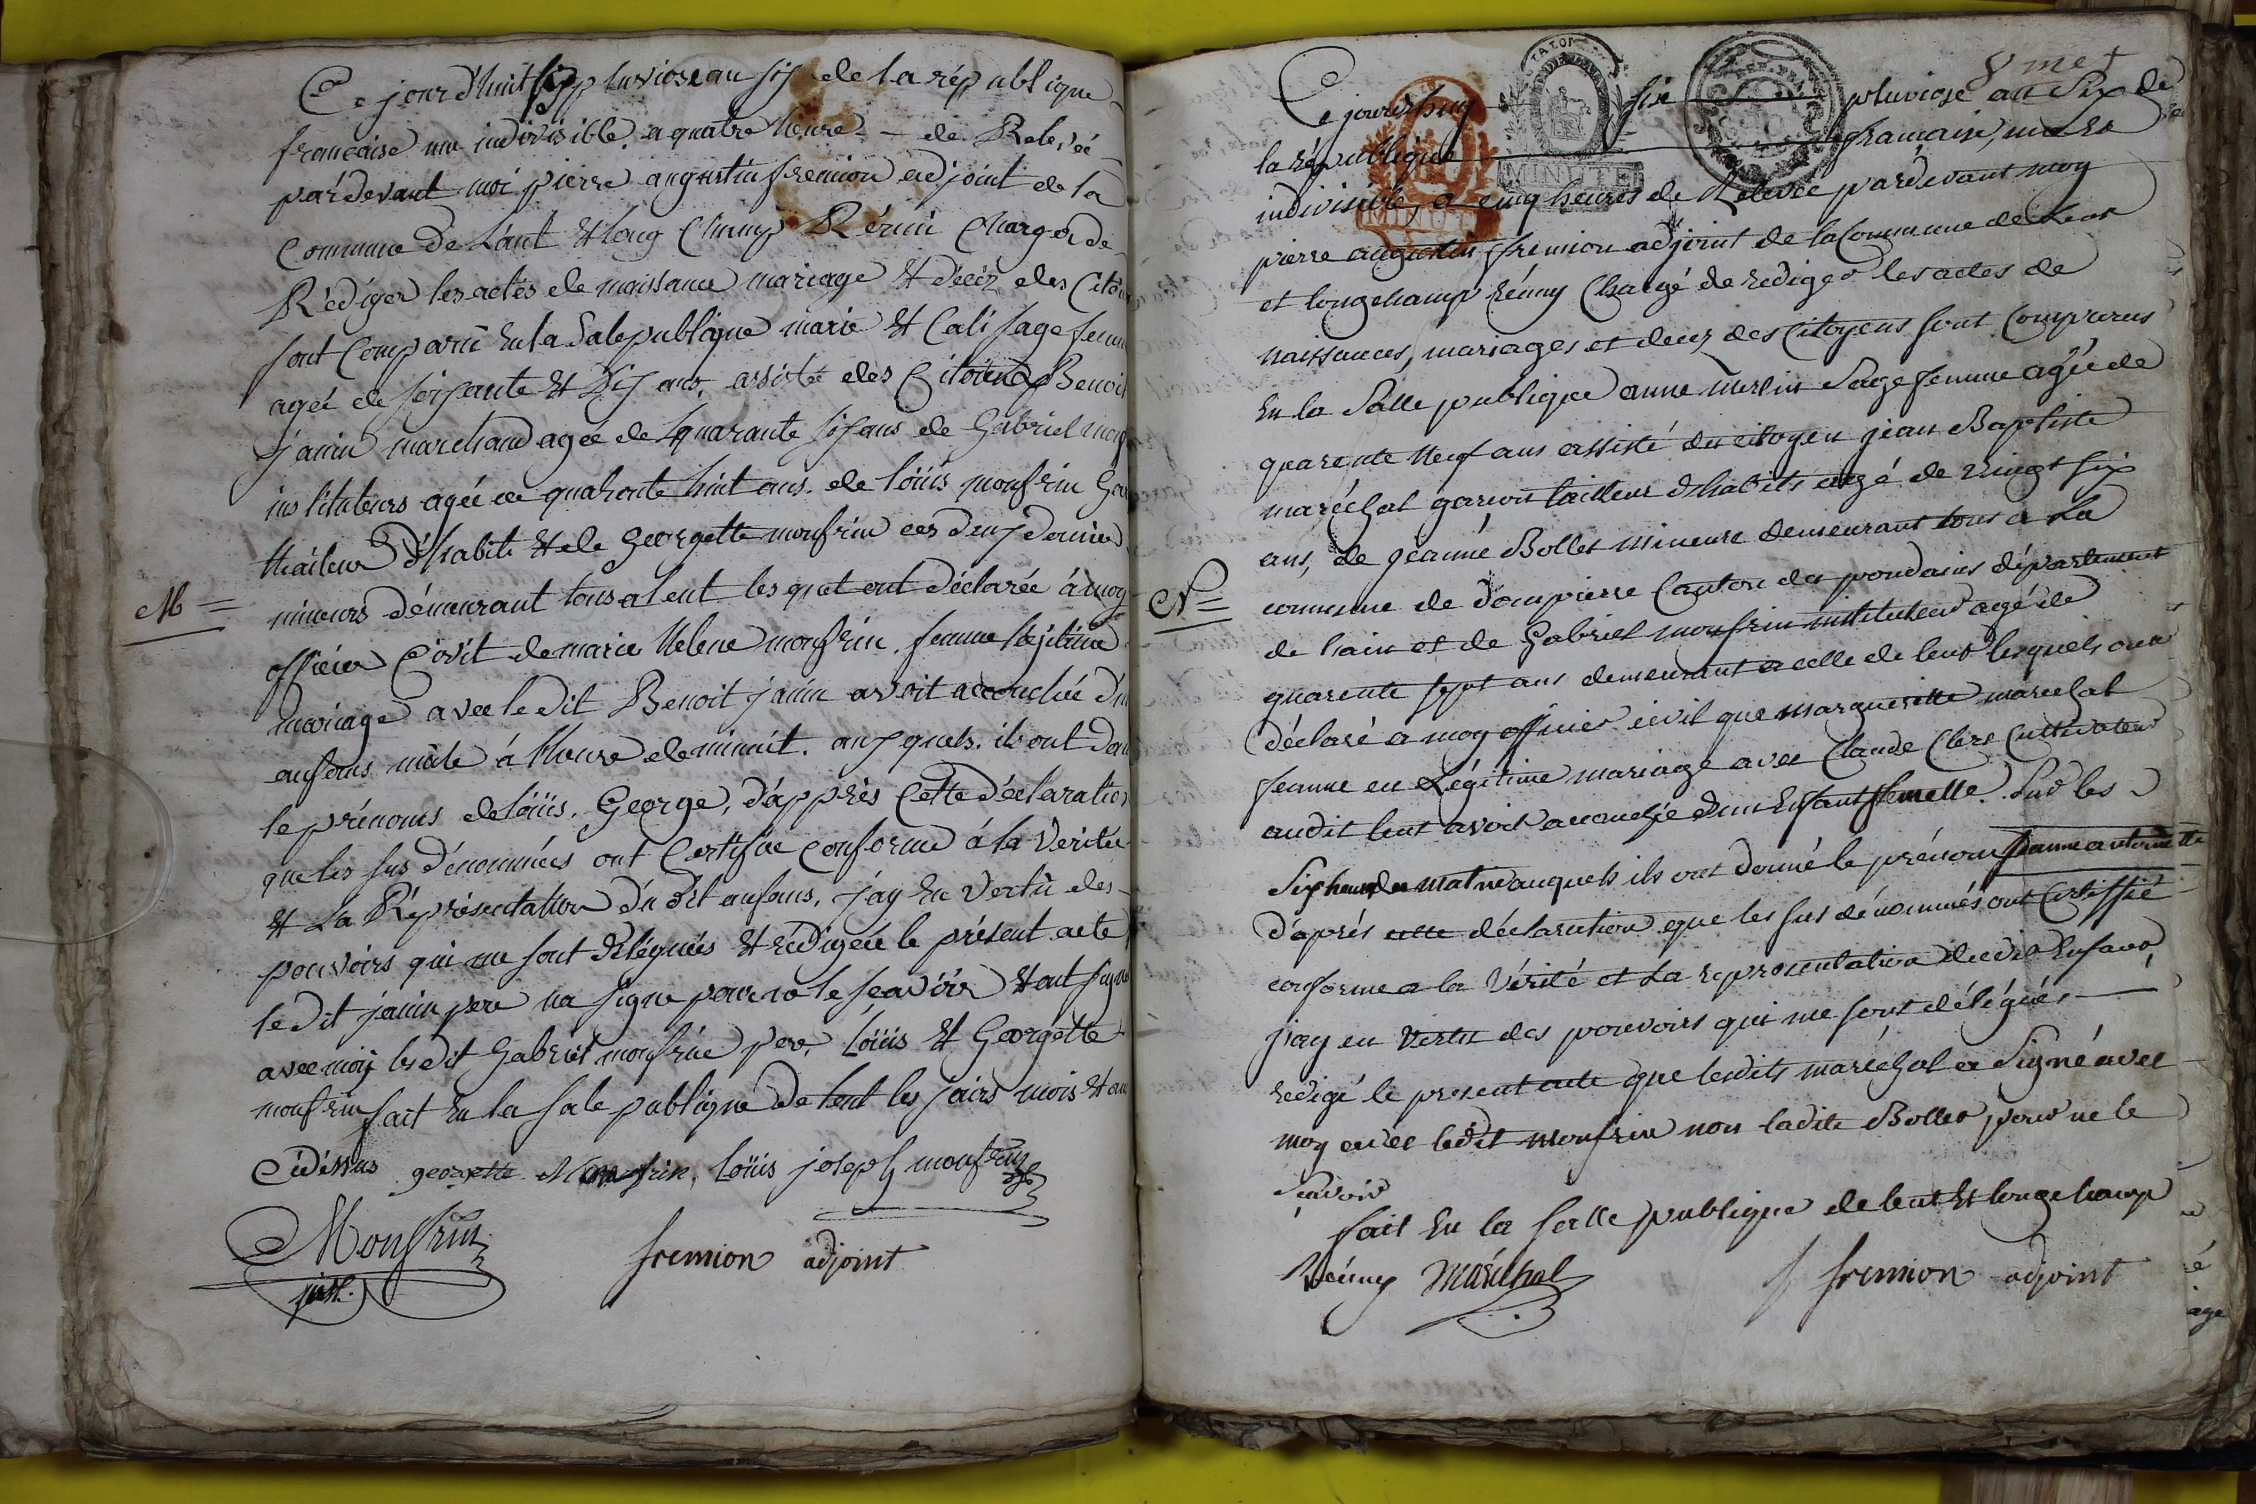 Ce jourd'huit six pluviose an six de la république
francaise une indivisible. a quatre heure — de Relevée
pardevant moi pierre augustin fremion adjoint de la
Commune de Lant et long Champ Rénni Charger de
Rédiger les actes de naissance mariage et décéz des Citoi
sont Comparü en la Sale publique marie et Cali sage femm
agéé de soixante et dix ans, assistée des Citoiens Benoit
janin marchand agée de quarante six ans de Gabriel mon
institateurs agéé de quarante huit ans. de loüis monfrin Gar
thailleur D'habits et de Georgette monfrin ces deux dernier
M =
mineurs démeurant tous a lent lesquel ont déclarée à moy
officier Civil de marie helene monfrin. femme légitime
mariage avec le dit Benoit janin avoit accouchée d'u
enfans male á l'heure de minuit. auxquels. ils ont don
le prénoms de loüis. George, d'apprès Cette déclaration
que les sus dénommées ont Certifié conforme á la Veritée
et La Réprésentation du dit enfans, j'ay En Vertü des
pouvoirs qui me sont délégués et rédigéé le présent acte
le dit janin pere na signe pour ne le scavoir et ont signe
avec moy lesdit Gabriel monfrin pere, Loüis et Georgette
monfrin fait En la sale publique de lent les jours mois et an
Cidéssus georgette Monfrin, loüis joseph monfrin
Monfrin
inst.
fremion adjoint
8 me +
Ce jourdhuy — six — pluviose an Six de
la république — francaise, une et
MINUTE
indivisible, a cinq heures de Relevée pardevant moy
pierre augustin fremion adjoint de la Commune de Lent
et longchamp rénny Chargé de rediger les actes de
naissances, mariages et decez des Citoyens sont Comparus
En la Salle publique anne merlin Sage femme agée de
quarente neuf ans assisté du citoyen jean Baptiste
maréchal garson tailleur d'habits agé de vingt six
ans, de jeanne Bollet mineure demeurant tous a La
N =
commune de dompierre Canton de pondains département
de l'ain et de Gabriel monfrin instituteur agé de
quarente sept ans demeurant a celle de lent lesquels ont
déclaré a moy officier civil que margueritte marechal
femme en Légitime mariage avec Claude Clere Cultivateur
audit lent avoit accouchée d'un Enfant femelle. Sur les
Six heures du matin auquels ils ont donné le prénom jeanne antoinette
d'aprés cette déclaration que les sus dénommés ont Certiffié
conforme a la Vérité et La representation dudit Enfant,
j'ay en Vertu des pouvoirs qui me sont délégués —
redigé le present acte que lesdits maréchal a Signé avec
moy avec ledit monfrin non ladite Bollet pour ne le
scavoir
fait En la salle publique de lent et longchamp
Rénny Maréchal
fremion adjoint